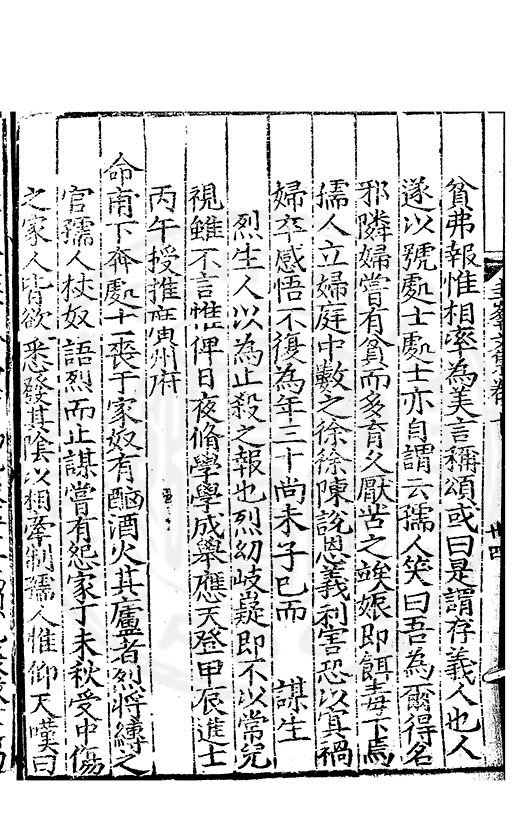 貧弗報惟相率為美言稱頌或曰是謂存義人也人
遂以號處士處士亦自謂云孺人笑曰吾為爾得名
邪隣婦嘗有貧而多育父厭苦之竢娠即餌毒下焉
孺人立婦庭中數之徐徐陳說恩義利害恐以冥禍
婦卒感悟不復為年三十尚未子已而 謀生
烈生人以為止殺之報也烈幼岐嶷即不以常兒
視雖不言惟俾日夜脩學學成舉應天登甲辰進士
丙午授推官廣州府
命甫下奔處士喪于家奴有酗酒火其廬者烈將縛之
官孺人杖奴 語烈而止謀嘗有怨家丁未秋受中傷
之家人皆欲 悉發其陰以相牽制孺人惟仰天嘆曰
文集卷十
卅四